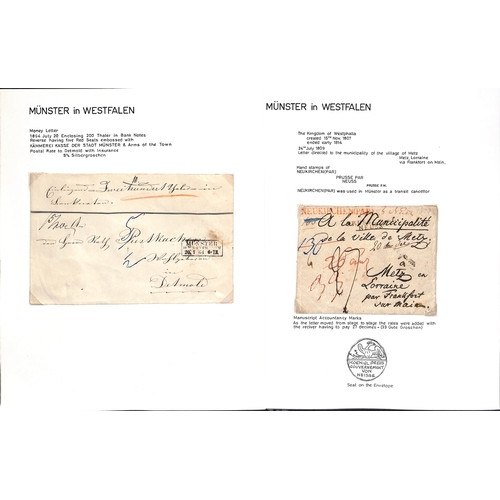 MÜNSTER in WESTFALEN
Money Letter
1864 July 20 Enclosing 200 Thaler in Bank Notes
Reverse having five Red Seals embossed with
KÄMMEREI KASSE DER STADT MÜNSTER & Arms of the Town
Postal Rate to Detmold with Insurance
5½ Silbergroschen
Zwei hundert
MÜNSTER
in
Detmold
MÜNSTER in WESTFALEN
The Kingdom of Westphalia
created 15TH Nov. 1807
ended early 1814
24th July 1809
Letter directed to the municipality of the village of Metz
Metz, Lorraine
via Frankfort on Main,
Hand stamps of
NEUKIRCHEN(PAR)
PRUSSE PAR
NEUSS
PRUSSE P.M.
NEUKIRCHEN(PAR) was used in Münster as a transit cancellor
NEUKIRCHENPAR
A la Municipalité
de la ville de Metz
130
à
Metz en
Lorraine
par Frankfort
sur Main.
Manuscript Accountancy Marks
As the letter moved from stage to stage the rates were added with
the reciver having to pay 27 decimes - (33 Gute Groschen)
KOENIGL. PREUS
GOUVERNEMENT
VON
Seal on the Envelope